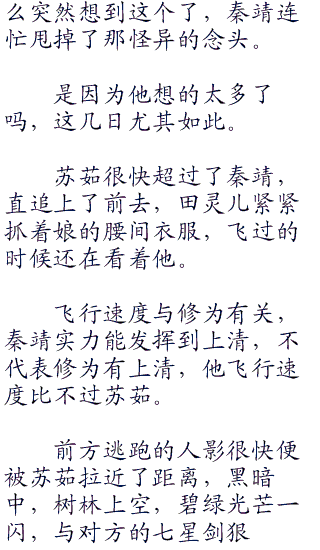 么突然想到这个了，秦靖连
忙甩掉了那怪异的念头。
是因为他想的太多了
吗，这几日尤其如此。
苏茹很快超过了秦靖，
直追上了前去，田灵儿紧紧
抓着娘的腰间衣服，飞过的
时候还在看着他。
飞行速度与修为有关，
秦靖实力能发挥到上清，不
代表修为有上清，他飞行速
度比不过苏茹。
前方逃跑的人影很快便
被苏茹拉近了距离，黑暗
中，树林上空，碧绿光芒一
闪，与对方的七星剑狠